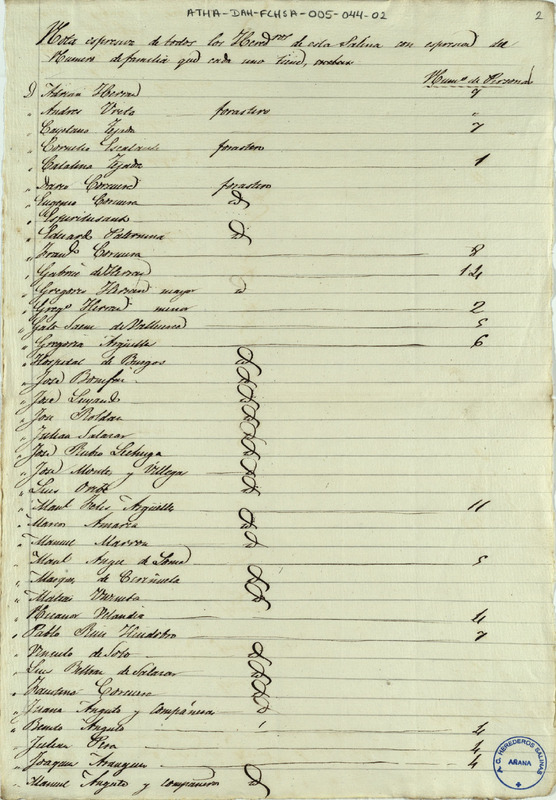 ATHA-DAH-FCHSA-005-044-02
2
Nota espresiva de todos los Hered.ros de esta Salina con espresion del
Numero de familia que cada uno tiene,
Num.o de Personas
D. Adrian Herran 7
" Andres Ureta forastero "
" Cayetano Tejada 7
" Cornelio Escalante forastero
" Catalina Tejada 1
" Dario Corcuera forastero
" Eugenio Corcuera id
" Espiritusanto
" Eduardo Paternina id
" Fran.co Corcuera 8
" Gabriel de Herran 14
" Gregorio Herran mayor id
" Greg.o Herran menor 2
" Galo Saenz de Valluerca 5
" Gregoria Argüelles 6
" Hospital de Burgos id
" José Bonifaz id
" José id
" José Roldan id
" Julian Salazar id
" José Pedro Lechuga id
" José Montes y Villega id
" Luis id
" Man.l Felix Argüelles 11
" Marcos Amarica id
" Manuel id
" Man.l Ang.l de 5
" Marques de id
" Matias id
" Nicanor Velandia 4
" Pablo Ruiz Huidobro 7
" Vinculo de Soto id
" Luis Beltran de Salazar id
" Faustino Corcuera id
" Juana Angulo y Compañera id
" Benito Angulo 4
" Julian 4
" Joaquin Aranguren 4
" Manuel Angulo y compañeros id
A.C. HEREDEROS SALINAS
AÑANA